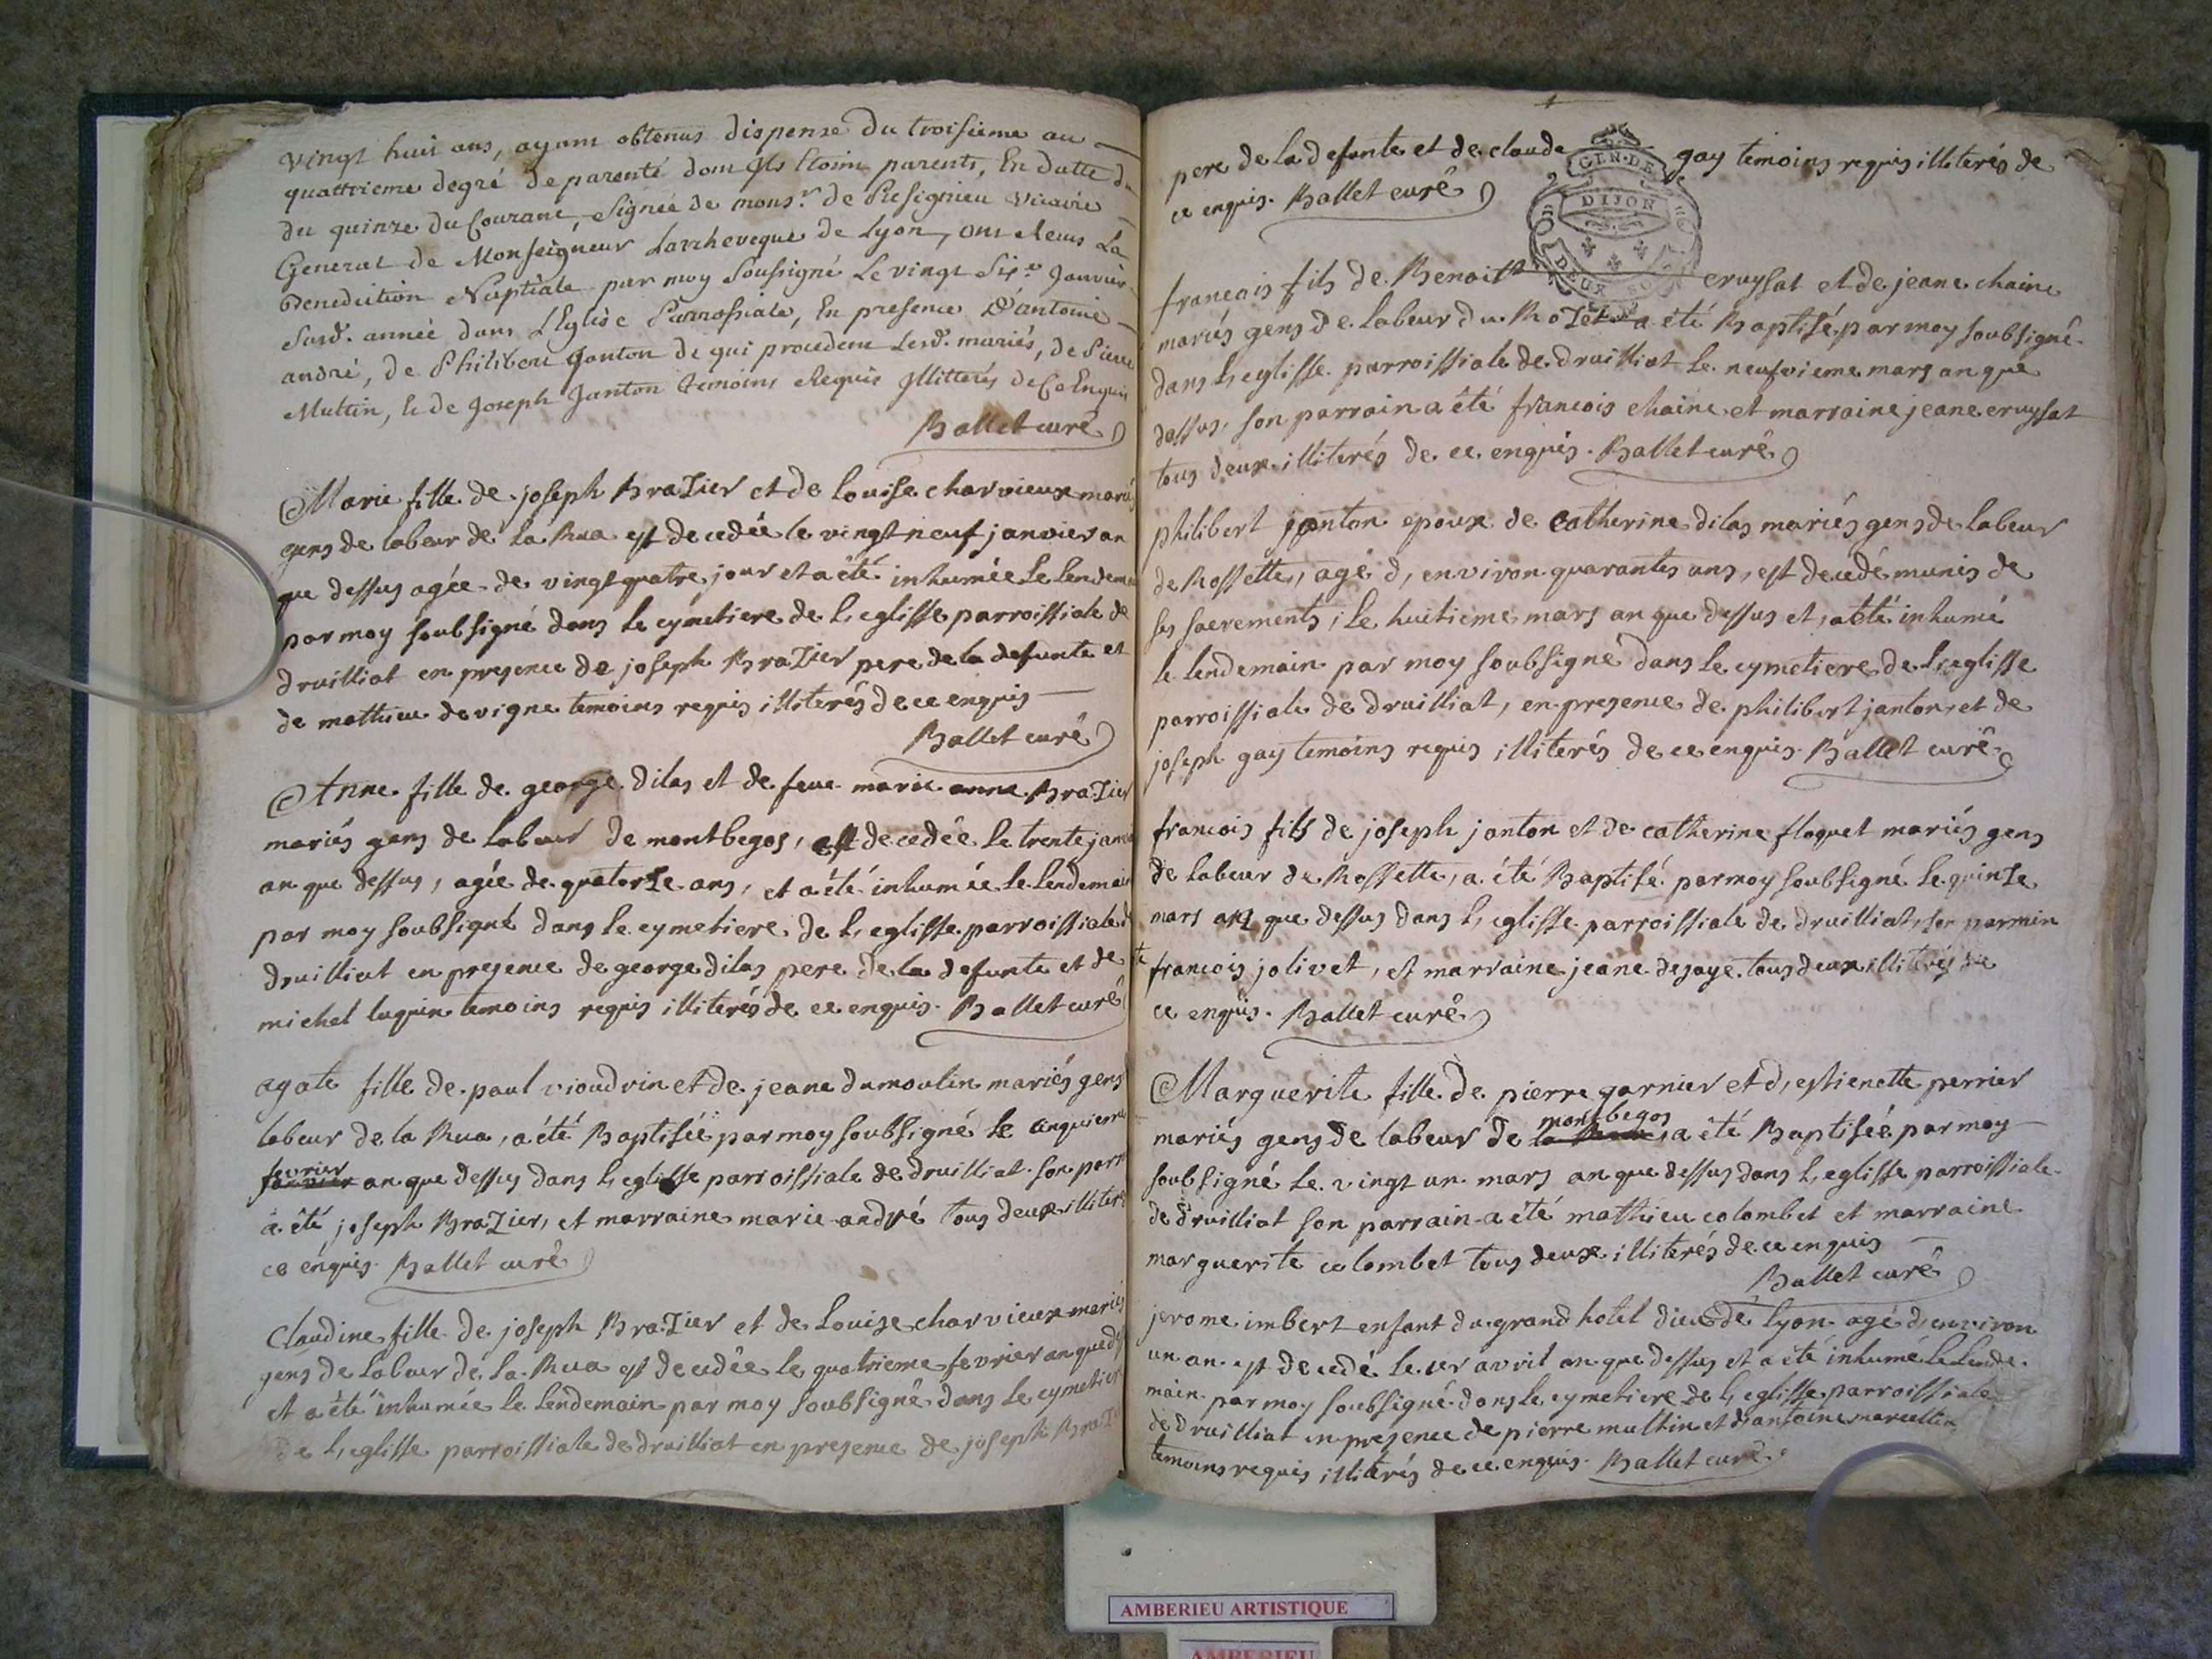 vingt huit ans, ayant obtenus dispense du troisieme au
quattrieme degré de parenté dont ils Etoint parents, En datte du
du quinze du Courant, Signée de mons.r de Presignieu vicaire
General de Monseigneur Larcheveque de Lyon, ont Receus La
Benediction Nuptiale par moy Soussigné Le vingt Six.e Janvier
Susd. année dans L'Eglise Parrossiale, En presence D'antoine
andré, de Philibert Janton de qui procedent Lesd. mariés, de Pierre
Multin, & de Joseph Janton temoins Requis Illitterés de Ce Enquis
Ballet curé
Marie fille de joseph BraZier et de louise charvieux mariés
gens de labeur de la Rua est decedée le vingt neuf janvier an
que dessus agée de vingt quatre jour et a été inhumée le lendem
par moy soubsigné dans le cymetiere de l,eglisse parroissiale de
druilliat en presence de joseph BraZier pere de la defunte et
de mathieu devigne temoins requis illiterés de ce enquis
Ballet curé
Anne fille de george dilas et de feue marie anne BraZier
mariés gens de labeur de montbegos, est decedée le trente janvi
an que dessus, agée de quatorZe ans, et a été inhumée le lendemain
par moy soubsigné dans le cymetiere de l,eglisse parroissiale d
druilliat en presence de george dilas pere de la defunte et de
michel luquin temoins requis illiterés de ce enquis. Ballet curé
agate fille de paul vioudrin et de jeane dumoulin mariés gens
labeur de la Rua, a été Baptisée par moy soubsigné le cinquieme
fevrier
janvier an que dessus dans l,eglisse parroissiale de druilliat son parr
a été joseph BraZier, et marraine marie andré tous deux illiter
ce enquis. Ballet curé
Claudine fille de joseph BraZier et de Louise charvieux mariés
gens de labeur de la Rua est decedée le quatrieme fevrier an que ds
et a été inhumée le lendemain par moy soubsigné dans le cymetier
de l,eglisse parroissiale de druilliat en presence de joseph BraZi
pere de la defunte et de claude gay temoins requis illiterés de
ce enquis. Ballet curé
GEN. DE
DIJON
DEUX SO
francois fils de Benoit cruysat et de jeane chaine
mariés gens de labeur du RoZet a été Baptisé par moy soubsigné
dans l,eglisse parroissiale de druilliat le neufvieme mars an que
dessus, son parrain a été francois chaine et marraine jeane cruysat
tous deux illiterés de ce enquis. Ballet curé
philibert janton epoux de catherine dilas mariés gens de labeur
de Rossette, agé d,environ quarantes ans, est decedé munis de
ses sacrements, le huitieme mars an que dessus et a été inhumé
le lendemain par moy soubsigné dans le cymetiere de l,eglisse
parroissiale de druilliat, en presence de philibert janton, et de
joseph gay temoins requis illiterés de ce enquis. Ballet curé
francois fils de joseph janton et de catherine floquet mariés gens
de labeur de Rossette, a été Baptisé par moy soubsigné le quinZe
mars an que dessus dans l,eglisse parroissiale de druilliat, son parrain
francois jolivet, et marraine jeane desaye tous deux illiterés de
ce enquis. Ballet curé
Marguerite fille de pierre garnier et d,estienette perrier
montbegos
mariés gens de labeur de la Rua, a été Baptisée par moy
soubsigné le vingt un mars an que dessus dans l,eglisse parroissiale
de druilliat son parrain a été mathieu colombet et marraine
marguerite colombet tous deux illiterés de ce enquis
Ballet curé
jerome imbert enfant du grand hotel dieu de lyon agé d,environ
un an est decedé le 1er avril an que dessus et a été inhumé le lende-
main par moy soubsigné dans le cymetiere de l,eglisse parroissiale
de druilliat en presence de pierre multin et d,antoine marcellin
temoins requis illiterés de ce enquis. Ballet curé
AMBERIEU ARTISTIQUE
AMBERIEU